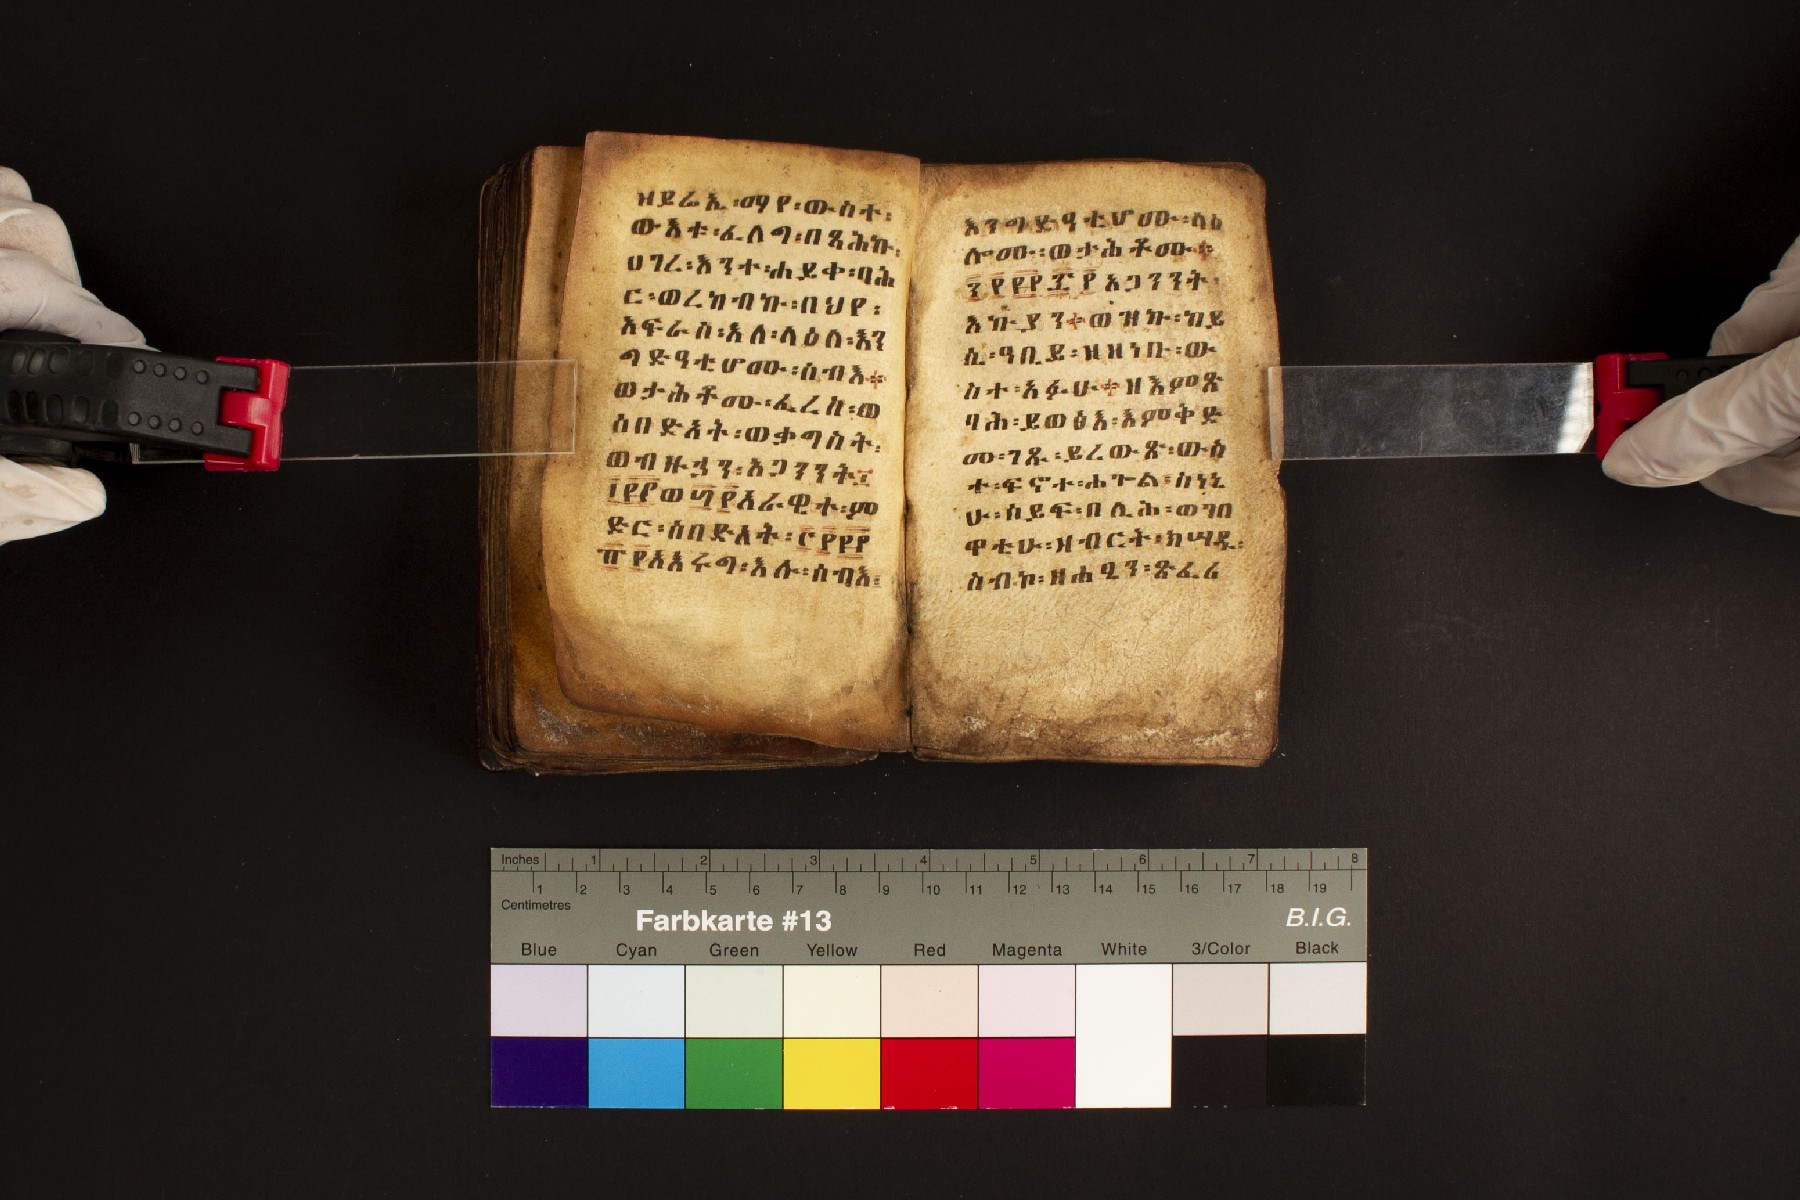 ዝይሬኢ፡ማየ፡ውስተ፡
ውእቱ፡ፈለግ፡በጺሕኩ፡
ሀገረ፡እንተ፡ሐይቀ፡ባሕ
ር፡ወረከብኩ፡በህየ፡
አፍራስ፡እለ፡ላዕለ፡እን
ግድዓቲሆሙ፡ሰብእ
ወታሕቶሙ፡ፈረስ፡ወ
ሰበድአት፡ወቃግስት፡
ወብዙኃን፡አጋንንት
ወ አራዊተ፡ም
ድር፡ሰበድአት፡
አእሩግ፡እሉ፡ሰብእ፡
እንግድዓቲሆሙ፡ላዕ
ሎሙ፡ወታሕቶሙ
አጋንንት፡
እኩያን ወዝኩ፡ከይ
ሲ፡ዓቢይ፡ዘዘነቡ፡ው
ስተ፡አፉሁ ዘእምጽ
ባሕ፡ይወፅእ፡እምቅድ
መ፡ገጹ፡ይረውጽ፡ውስ
ተ፡ፍኖተ፡ሐጕል፡ከነኒ
ሁ፡ሰይፍ፡በሊሕ፡ወገበ
ዋቲሁ፡ዝብርት፡ክሣዱ፡
ስብኮ፡ዘሐፂን፡ጽፈረ
Inches 1 2 3 4 5 6 7 8
1 2 3 4 5 6 7 8 9 10 11 12 13 14 15 16 17 18 19
Centimetres
Farbkarte #13 B.I.G.
Blue Cyan Green Yellow Red Magenta White 3/Color Black